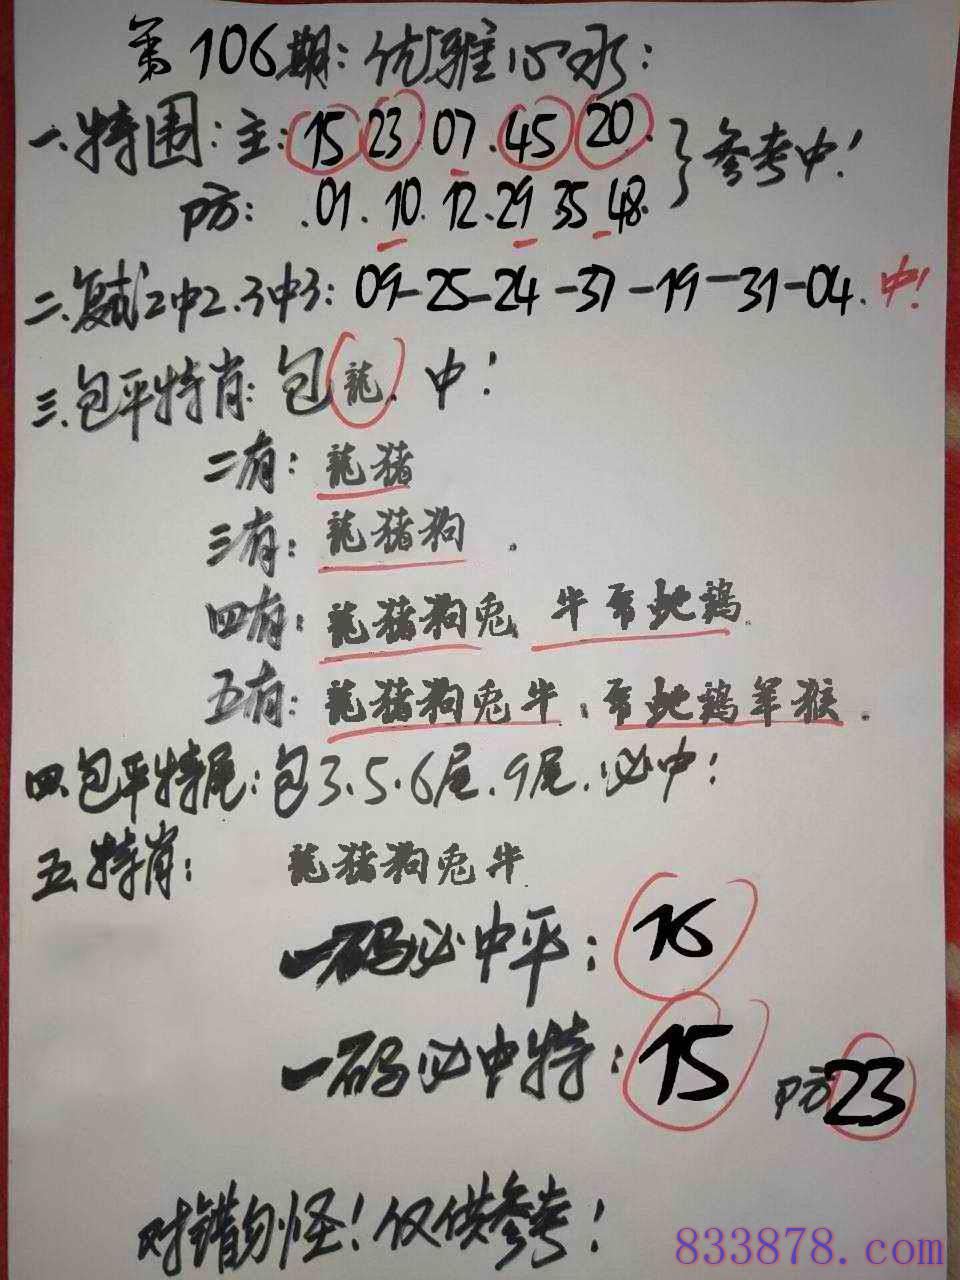 第106期:优雅心水:
一.特围:主:15 23 07.45 20.
防:.01.10.12.29 35 48.
参考中!
二.复试2中2.3中3:09-25-24-37-19-31-04.中!
三.包平特肖:包龍.中!
二有:龍猪
三有:龍猪狗.
四有:龍猪狗兎 牛常蛇鶏.
五有:龍猪狗兎牛.常蛇鶏羊猴.
四.包平特尾:包3.5.6尾.9尾.必中!
五.特肖:龍猪狗兎牛
一码必中平:16
一码必中特:15 防23
对错勿怪!仅供参考!
833878.com